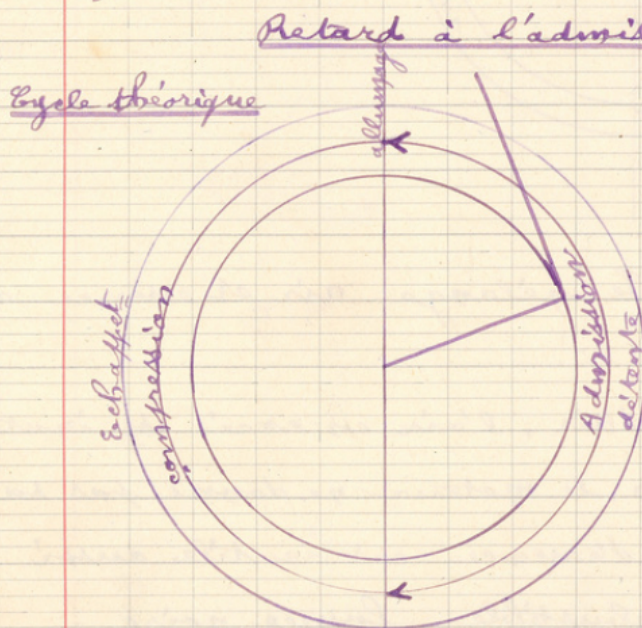 Retard à l'admis
Cycle théorique
allumage
Echappet
compression
Admission
détente